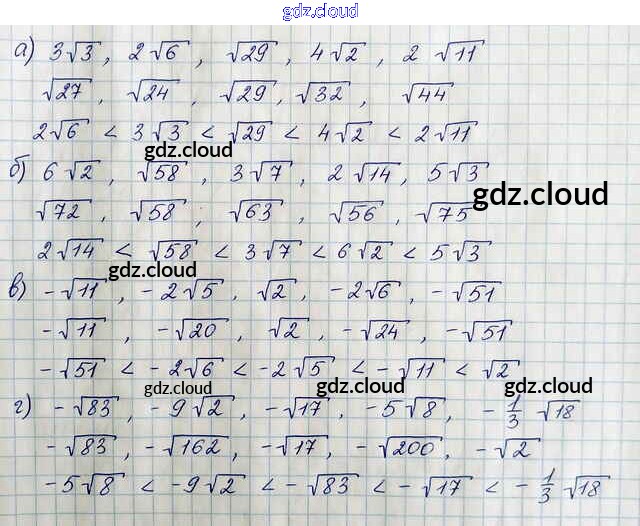 gdz.cloud
а) 3√3, 2√6, √29, 4√2, 2√11
√27, √24, √29, √32, √44
2√6 < 3√3 < √29 < 4√2 < 2√11
gdz.cloud
б) 6√2, √58, 3√7, 2√14, 5√3
gdz.cloud
√72, √58; √63, √56, √75
2√14 < √58 < 3√7 < 6√2 < 5√3
gdz.cloud
в) -√11, -2√5, √2, -2√6, -√51
-√11, -√20, √2, -√24, -√51
-√51 < -2√6 < -2√5 < -√11 < √2
gdz.cloud gdz.cloud gdz.cloud
г) -√83, -9√2, -√17, -5√8, -1/3 √18
-√83, -√162, -√17, -√200, -√2
-5√8 < -9√2 < -√83 < -√17 < -1/3 √18